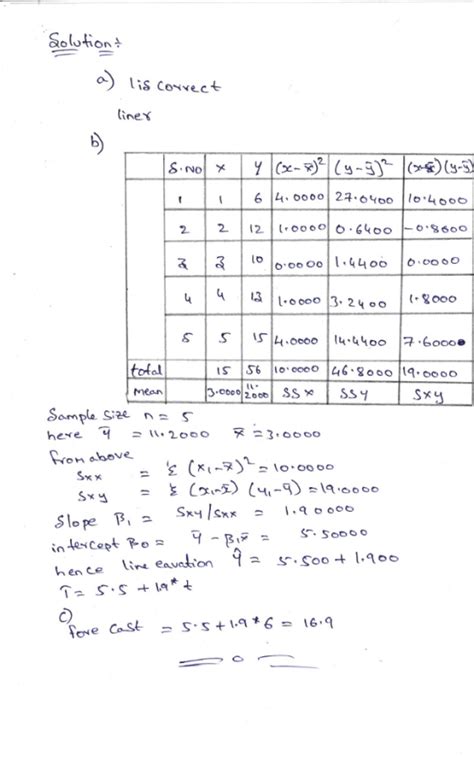 Solution:
a) 1 is correct
liner
b)
S.NO x y (x-x̄)² (y-ȳ)² (x-x̄)(y-ȳ)
1 1 6 4.0000 27.0400 10.4000
2 2 12 1.0000 0.6400 -0.8000
3 3 10 0.0000 1.4400 0.0000
4 4 13 1.0000 3.2400 1.8000
5 5 15 4.0000 14.4400 7.6000
total 15 56 10.0000 46.8000 19.0000
mean 3.0000 11.2000 SSx SSy Sxy
Sample size n = 5
here ȳ = 11.2000 x̄ = 3.0000
from above
Sxx = Σ (x₁-x̄)² = 10.0000
Sxy = Σ (x₁-x̄) (y₁-ȳ) = 19.0000
Slope β₁ = Sxy/Sxx = 1.90000
intercept β₀ = ȳ - β₁x̄ = 5.50000
hence line eauation ŷ = 5.500 + 1.900
T = 5.5 + 1.9* t
c)
fore cast = 5.5 + 1.9 * 6 = 16.9